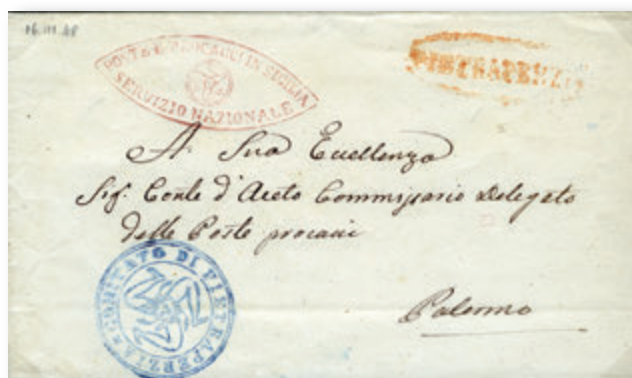 16.III.48
POSTA E PROCACCI IN SICILIA
SERVIZIO NAZIONALE
PIETRAPERZIA
A Sua Eccellenza
Sig. Conte d'Aceto Commissario Delegato
delle Poste procacci
COMITATO DI PIETRAPERZIA
Palermo